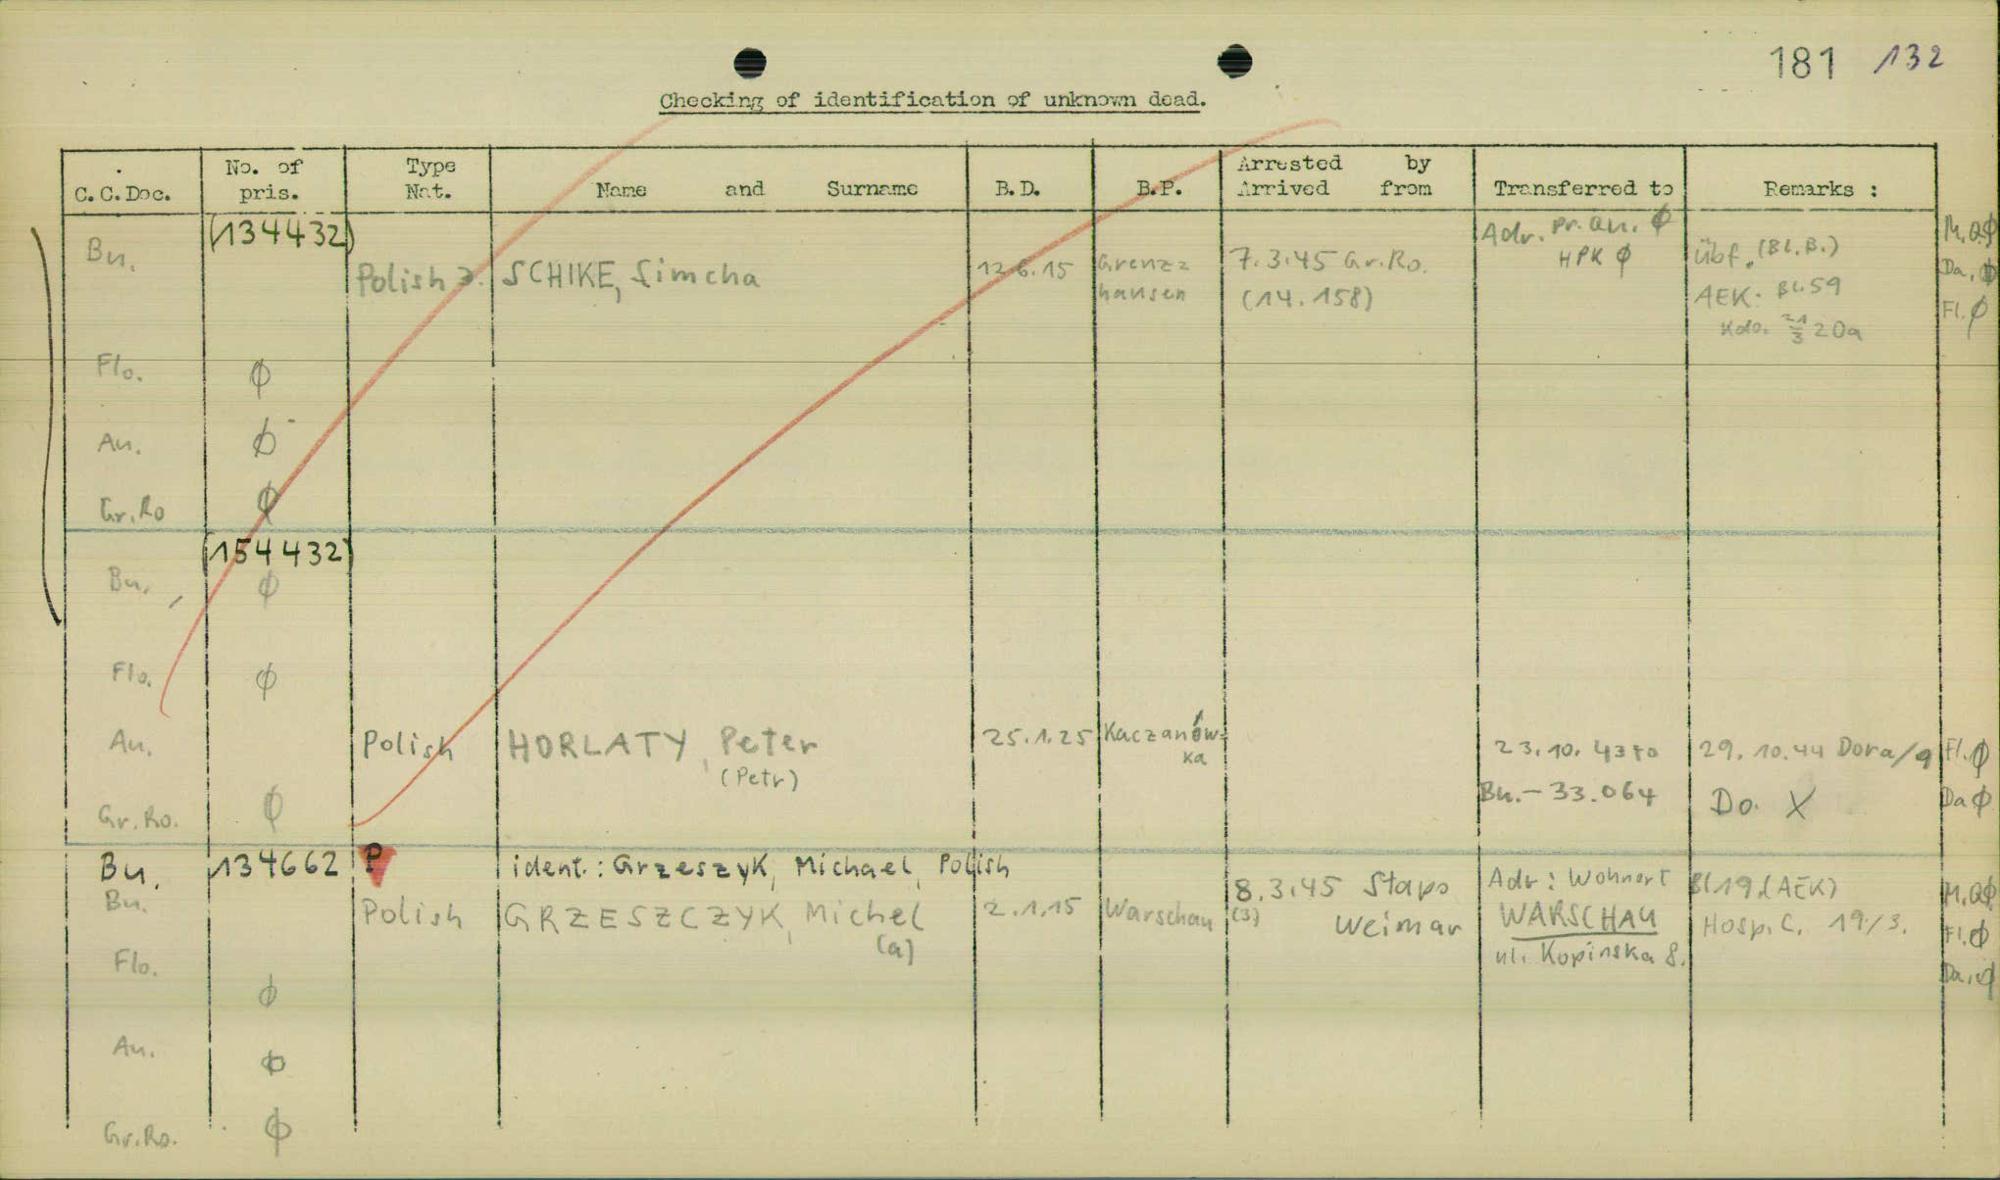 181 132
Checking of identification of unknown dead.
C.C.Doc. No. of pris. Type Nat. Name and Surname B.D. B.P. Arrested by Arrived from Transferred to Remarks :
(134432) Adr. Pr. an. ϕ M.Qϕ
Bu. HPK ϕ Übf. (Bl.B.)
Polish J. SCHIKE, Simcha 12.6.15 Grenzz 7.3.45 Gr.Ro. Da. ϕ
hausen (14.158) AEK: Bl.59 Fl. ϕ
Kdo. 21/3 20a
Flo. ϕ
Au. ϕ
Gr.Ro ϕ
(154432)
Bu. ϕ
Flo. ϕ
Au. Polish HORLATY, Peter 25.1.25 Kaczanów- 23.10.43 to 29.10.44 Dora/9 Fl. ϕ
(Petr) ka
Gr.Ro. ϕ Bu.- 33.064 Do. X Da ϕ
Bu. 134662 P ident.: Grzeszyk, Michael, Polish
Bu. Polish GRZESZCZYK, Michel 2.1.15 Warschau 8.3.45 Stapo Adr: Wohnort Bl 19 (AEK) M.Qϕ
(a) (3) Weimar WARSCHAU Hosp.C. 19/3. Fl. ϕ
Flo. ϕ ul. Kopinska 8. Da. ϕ
Au. ϕ
Gr.Ro. ϕ